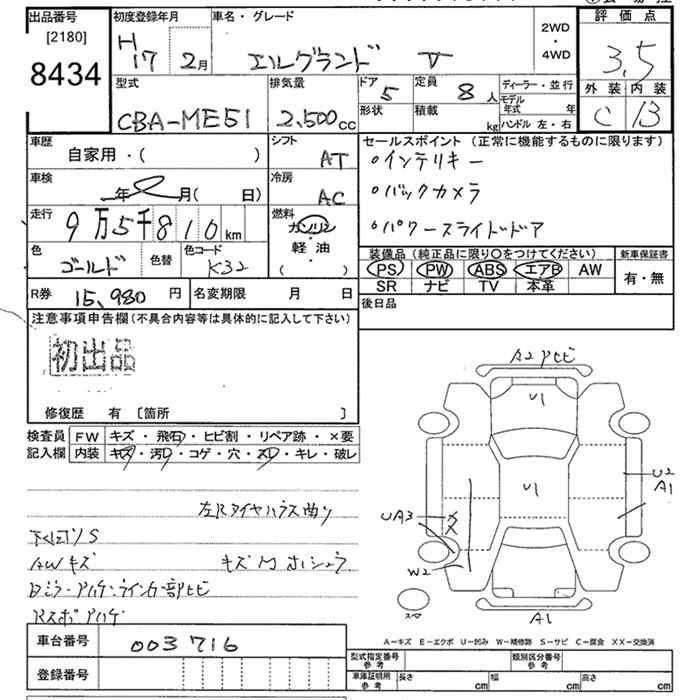 出品番号
[2180]
8434
初度登録年月
H17 2月
車名・グレード
エルグランド V
2WD
・
4WD
評価点
3.5
外装 内装
C B
型式
CBA-ME51
排気量
2,500cc
ドア 5
定員 8人
形状
積載 kg
ディーラー・並行
モデル年式 年
ハンドル 左・右
車歴
自家用・( )
シフト
AT
セールスポイント (正常に機能するものに限ります)
○インテリキー
○バックカメラ
○パワースライドドア
車検
年 月( 日)
冷房
AC
走行
9万5千810km
燃料
ガソリン
・
軽・油
( )
色
ゴールド
色替
色コード
K32
装備品(純正品に限り○をつけてください)
PS PW ABS エアB AW
SR ナビ TV 本革
新車保証書
有・無
R券 15,980円
名変期限 月 日
後日品
注意事項申告欄(不具合内容等は具体的に記入して下さい)
初出品
修復歴 有 [箇所 ]
検査員 FW キズ・飛石・ヒビ割・リペア跡・×要
記入欄 内装 キズ・汚レ・コゲ・穴・スレ・キレ・破レ
下回りS
AWキズ
A2 ワレ
U1
U1
U2
A1
UA3
W2
スペア
A1
A-キズ E-エクボ U-凹み W-補修跡 S-サビ C-腐食 XX-交換済
車台番号 003716
登録番号
型式指定番号 参考
類別区分番号 参考
車庫証明所 参考 長さ cm 幅 cm 高さ cm